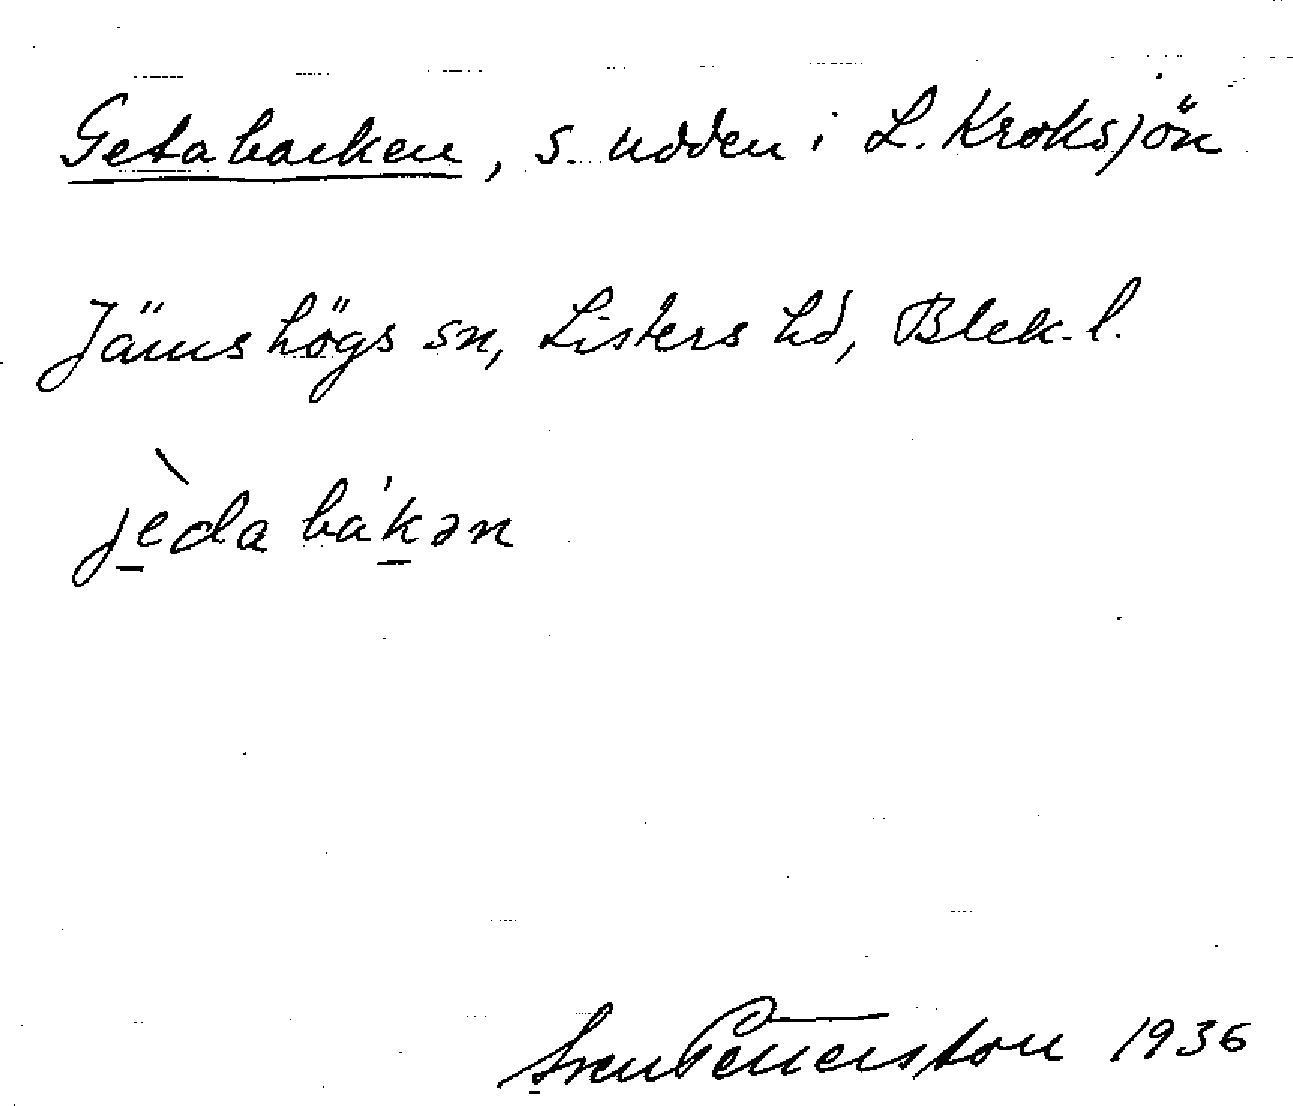 Getabacken, s. udden i L. Kroksjön
Jämshögs sn, Listers hd, Blek. l.
jèda bákən
Sven Pettersson 1936